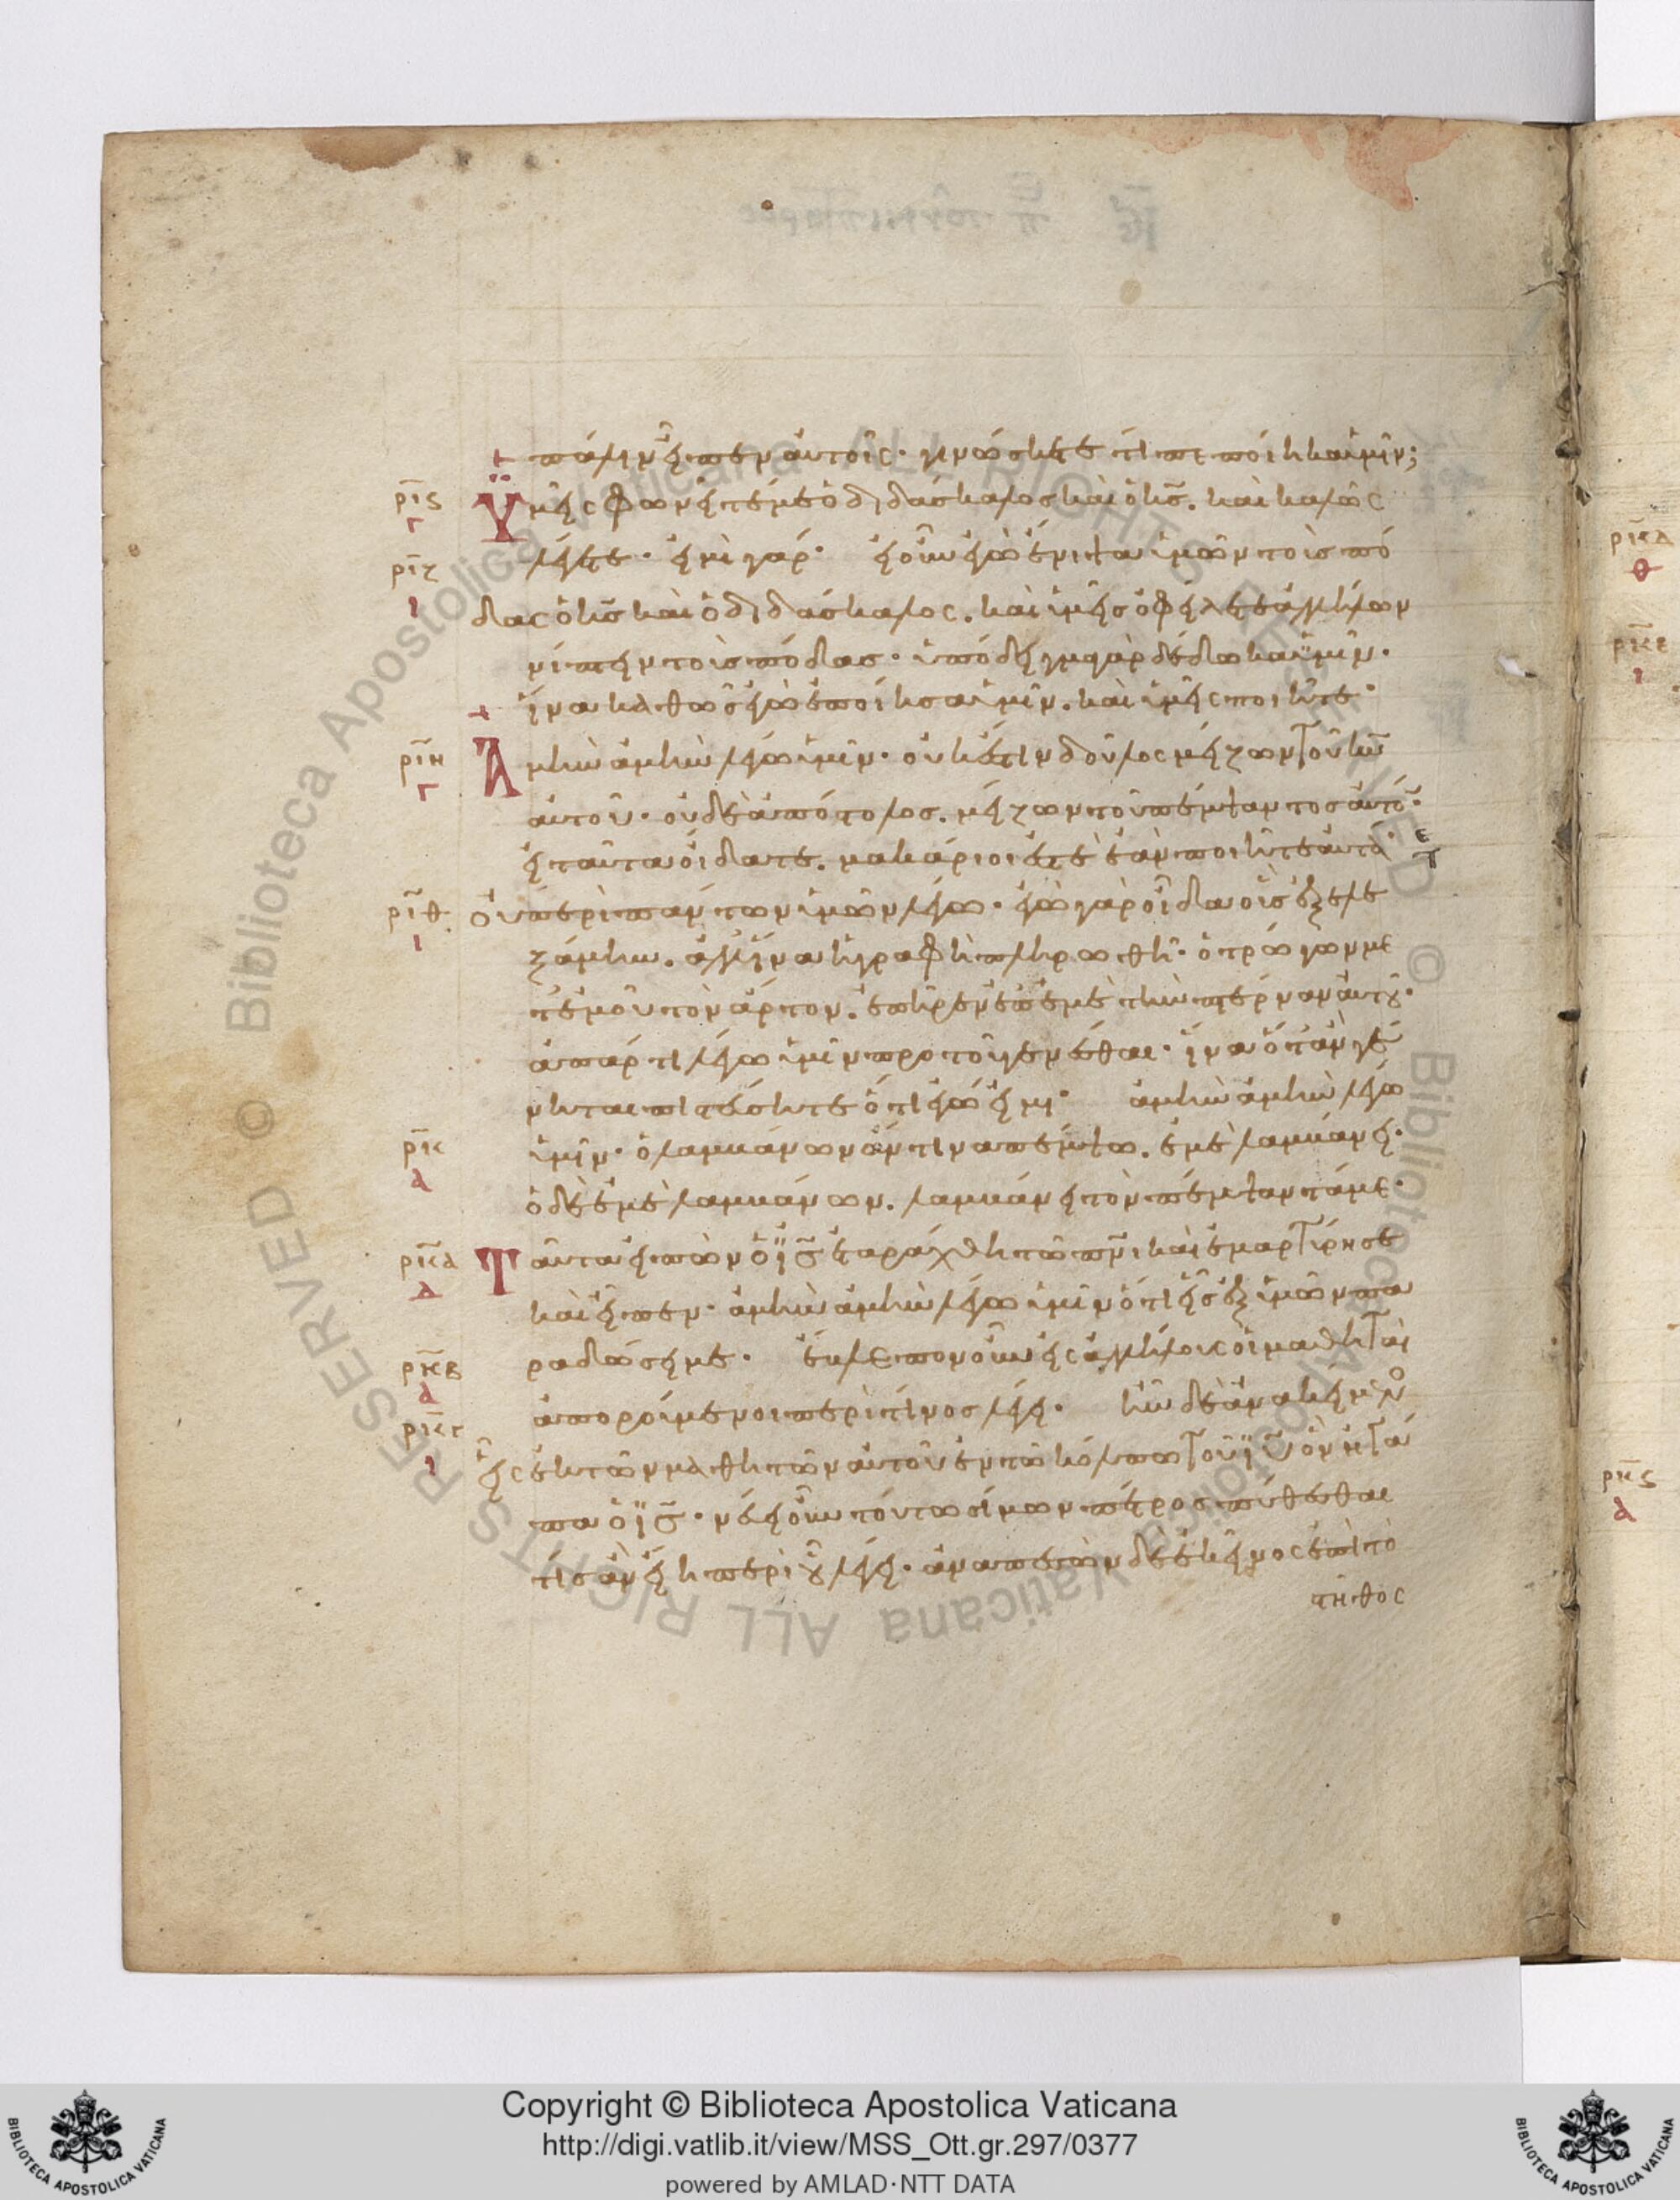 πάλιν εἶπεν αὐτοῖς· γινώσκετε τί πεποίηκα ὑμῖν;
ρις Γ Ὑμεῖς φωνεῖτέ με ὁ διδάσκαλος καὶ ὁ κ̅ς̅. καὶ καλῶς
ριζ ι λέγετε· εἰμὶ γάρ· εἰ οὖν ἐγὼ ἔνιψα ὑμῶν τοὺς πό
δας ὁ κ̅ς̅ καὶ ὁ διδάσκαλος. καὶ ὑμεῖς ὀφείλετε ἀλλήλων
νίπτειν τοὺς πόδας· ὑπόδειγμα γὰρ δέδωκα ὑμῖν·
ἵνα καθὼς ἐγὼ ἐποίησα ὑμῖν. καὶ ὑμεῖς ποιῆτε·
ριη Γ Ἀμὴν ἀμὴν λέγω ὑμῖν· οὐκ ἔστιν δοῦλος μείζων τοῦ κ̅υ̅
αὐτοῦ· οὐδὲ ἀπόστολος. μείζων τοῦ πέμψαντος αὐτόν·
εἰ ταῦτα οἴδατε. μακάριοι ἐστὲ ἐὰν ποιῆτε αὐτά·
ριθ ι Οὐ περὶ πάντων ὑμῶν λέγω· ἐγὼ γὰρ οἶδα οὓς ἐξελε
ξάμην. ἀλλ' ἵνα ἡ γραφὴ πληρωθῇ· ὁ τρώγων με
τ' ἐμοῦ τὸν ἄρτον. ἐπῆρεν ἐπ' ἐμὲ τὴν πτέρναν αὐτοῦ·
ἀπάρτι λέγω ὑμῖν πρὸ τοῦ γενέσθαι· ἵνα ὅταν γέ
νηται πιστεύσητε ὅτι ἐγώ εἰμι· ἀμὴν ἀμὴν λέγω
ρκ α ὑμῖν· ὁ λαμβάνων ἄν τινα πέμψω. ἐμὲ λαμβάνει·
ὁ δὲ ἐμὲ λαμβάνων. λαμβάνει τὸν πέμψαντά με·
ρκα Δ Ταῦτα εἰπὼν ὁ ι̅ς̅ ἐταράχθη τῷ π̅ν̅ι̅ καὶ ἐμαρτύρησε
καὶ εἶπεν· ἀμὴν ἀμὴν λέγω ὑμῖν ὅτι εἷς ἐξ ὑμῶν πα
ρκβ α ραδώσει με· ἔβλεπον οὖν εἰς ἀλλήλους οἱ μαθηταὶ
ρκγ ι ἀπορούμενοι περὶ τίνος λέγει· ἦν δὲ ἀνακείμενος
εἷς ἐκ τῶν μαθητῶν αὐτοῦ ἐν τῷ κόλπῳ τοῦ ι̅υ̅ ὃν ἠγά
πα ὁ ι̅ς̅· νεύει οὖν τούτῳ σίμων πέτρος πυθέσθαι
τίς ἂν εἴη περὶ οὗ λέγει· ἀναπεσὼν δὲ ἐκεῖνος ἐπὶ τὸ
στῆθος
ρκδ
θ
ρκε
ι
ρκς
α
Copyright © Biblioteca Apostolica Vaticana
http://digi.vatlib.it/view/MSS_Ott.gr.297/0377
powered by AMLAD·NTT DATA
BIBLIOTECA APOSTOLICA VATICANA
BIBLIOTECA APOSTOLICA VATICANA
© Biblioteca Apostolica Vaticana ALL RIGHTS RESERVED
© Biblioteca Apostolica Vaticana ALL RIGHTS RESERVED